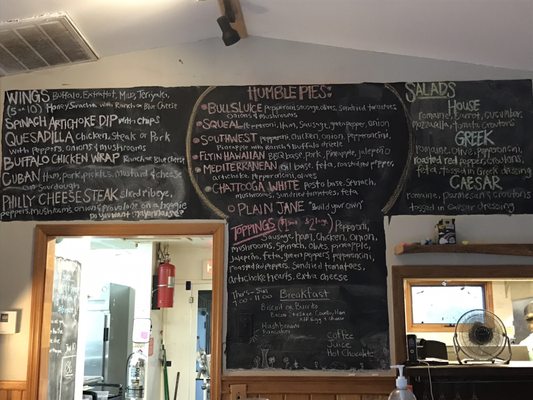 WINGS Buffalo, Extra Hot, Mild, Teriyaki,
(5 or 10) Honey Sriracha with Ranch or Blue Cheese
SPINACH ARTICHOKE DIP with chips
QUESADILLA chicken, Steak or Pork
with peppers, onions & mushrooms
BUFFALO CHICKEN WRAP Ranch or Blue Cheese
CUBAN Ham, pork, pickles, mustard & cheese
on Sourdough
PHILLY CHEESESTEAK sliced ribeye,
peppers, mushrooms, onions & provolone on a hoggie
HUMBLE PIES:
BULLSLUICE Pepperoni, sausage, olives, Sundried tomatoes
onions & mushrooms
SQUEAL Pepperoni, Ham, Sausage, green pepper, onion
SOUTHWEST peppers, chicken, onion, pepperoncini,
Pineapple with Ranch & Buffalo drizzle
FLYIN HAWAIIAN BBQ base, pork, pineapple, jalapeño
MEDITERRANEAN oil base, feta, roasted peppers
artichoke, pepperoncini, olives
CHATTOOGA WHITE Pesto base, Spinach,
mushrooms, sundried tomatoes, feta
PLAIN JANE "Build your own"
TOPPINGS Pepperoni,
Sausage, Ham, Chicken, Onion,
mushrooms, Spinach, Olives, pineapple,
Jalapeño, feta, green peppers, pepperoncini,
roasted red peppers, Sundried tomatoes,
artichoke hearts, extra cheese
Thurs-Sun
Breakfast
Biscuit or Burrito
Hashbrowns
Pancakes
Coffee
Juice
Hot Chocolate
SALADS
HOUSE
romaine, carrot, cucumber,
mozzarella, tomato, croutons
GREEK
romaine, olives, pepperoncini,
roasted red peppers, onions,
feta, tossed in Greek dressing
CAESAR
romaine, parmesan, croutons
tossed in Caesar dressing